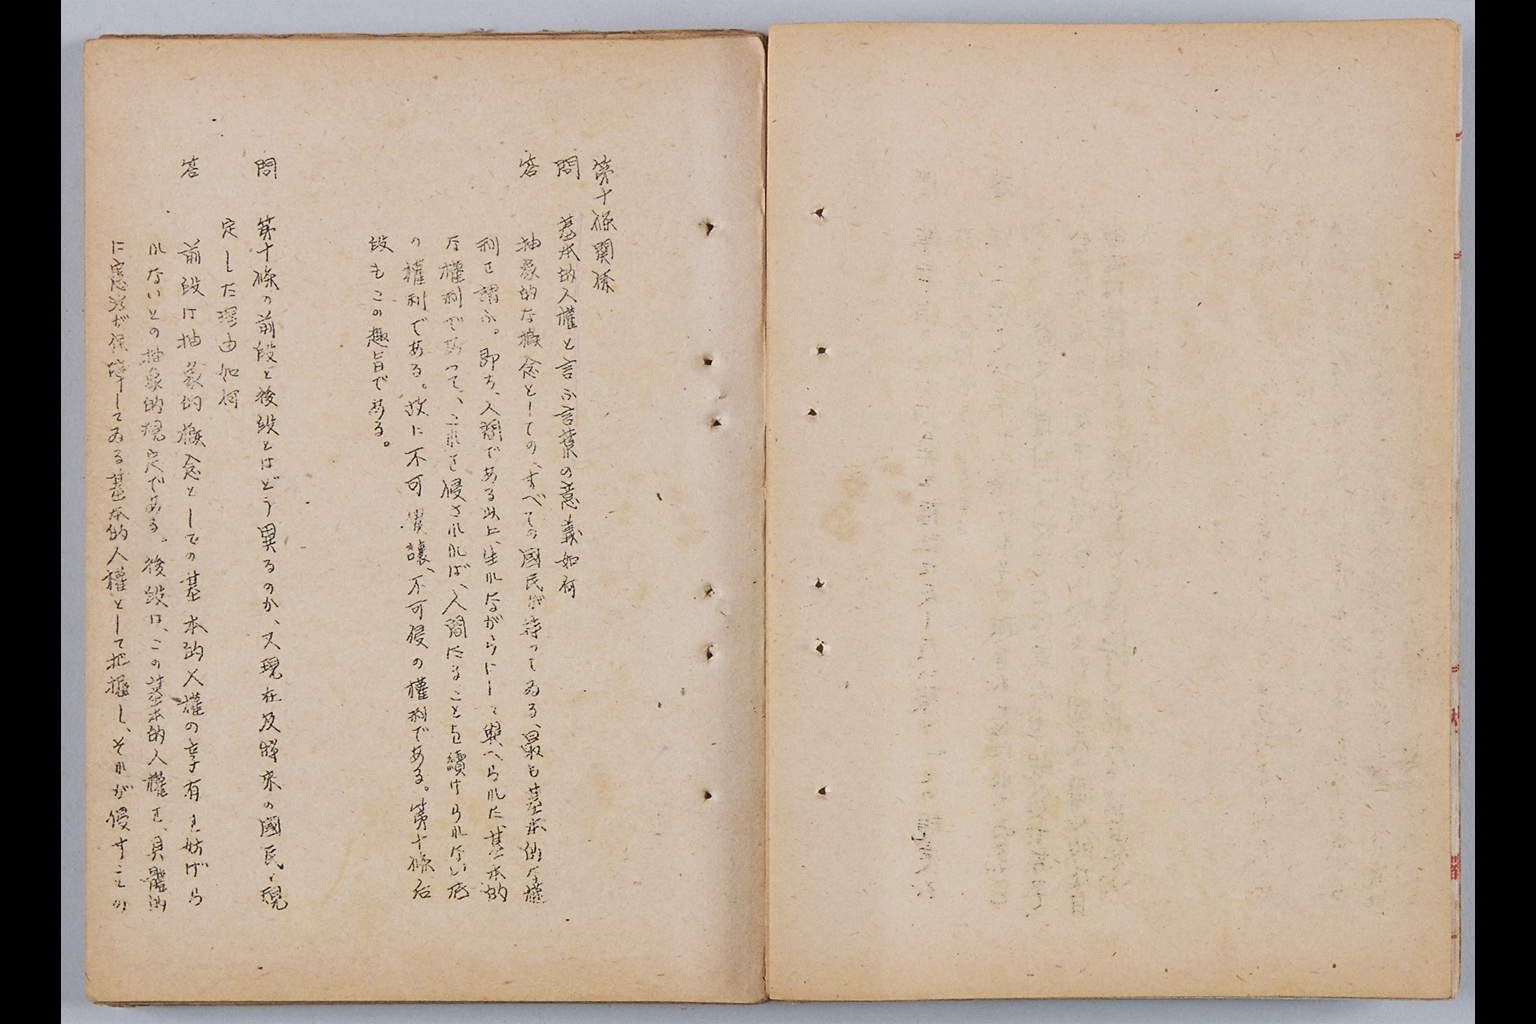 第十條關係
問　基本的人權と言ふ言葉の意義如何
答　抽象的な概念としての、すべての國民が持つてゐる、最も基本的な權
利を謂ふ。即ち、人間である以上、生れながらにして與へられた、基本的
な權利であつて、これを侵されれば、人間たることを續けられない底
の權利である。故に不可讓、不可侵の權利である。第十條后
段もこの趣旨である。
問　第十條の前段と後段とはどう異るのか、又現在及將來の國民と規
定した理由如何
答　前段は抽象的概念としての基本的人權の享有を妨げら
れないとの抽象的規定である。後段は、この基本的人權を、具體的
に憲法が保障してゐる基本的人權として把握し、それが侵すことの